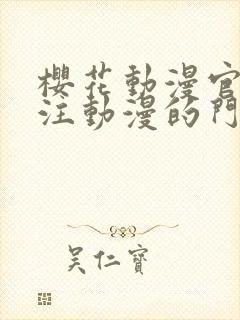 櫻花動漫官
注動漫的門
吳仁寶